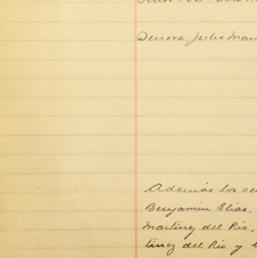 Senora Julia Mar
Además los c
Benjamin Elias,
Martinez del Rio,
tinez del Rio y